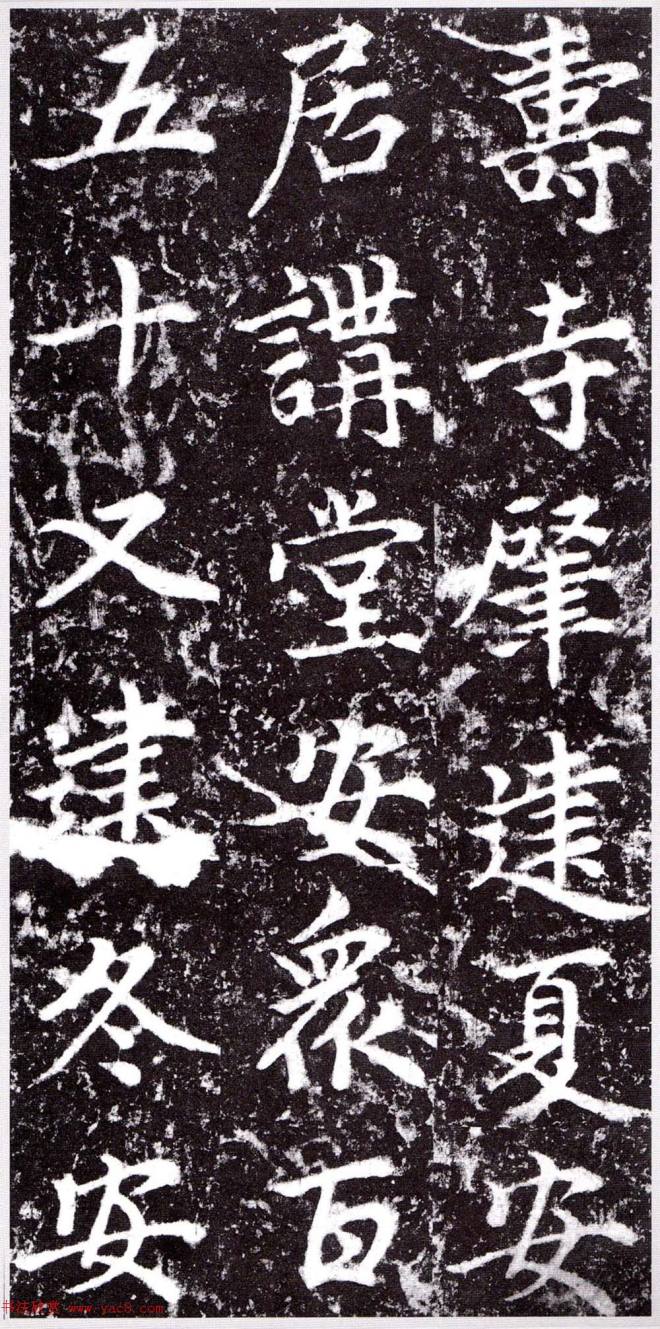 壽寺肇建夏安
居講堂安眾百
五十又建冬安
书法欣赏 www.yac8.com